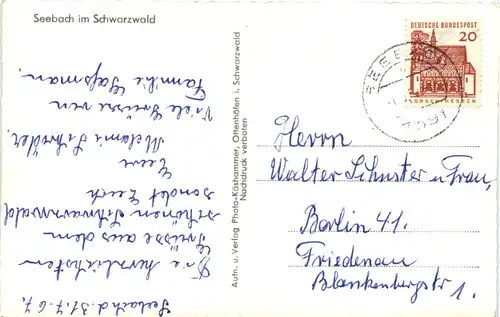 Seebach im Schwarzwald
Seebach d. 31.7.67.
Die herzlichsten
Grüsse aus dem
schönen Schwarzwald
sendet Euch
Eure
Melanie Schröder,
Viele Grüsse von
Familie
Aufn. u. Verlag Photo-Käshammer, Ottenhöfen i. Schwarzwald
Nachdruck verboten
DEUTSCHE BUNDESPOST
20
LORSCH/HESSEN
SEEBACH
7591
Herrn
Walter Schuster u Frau,
Berlin 41.
Friedenau
Blankenbergstr 1.